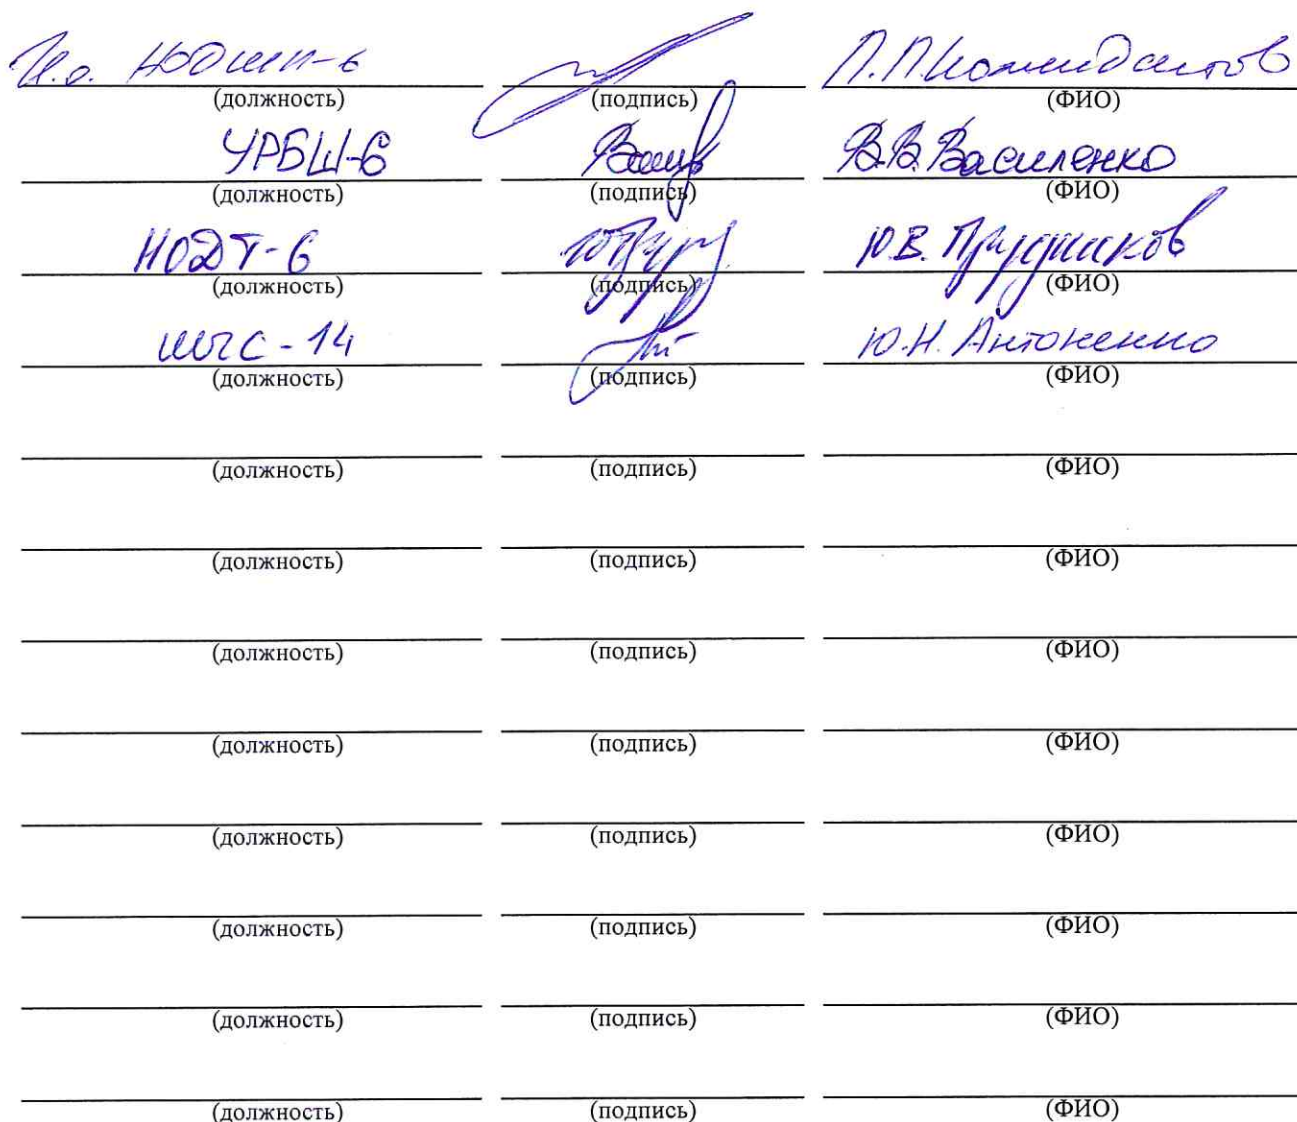 И.о. НОДШП-6 П.П. Комендантов
(должность) (подпись) (ФИО)
УРБШ-6 В.В. Василенко
(должность) (подпись) (ФИО)
НОДТ-6 Ю.В. Прудников
(должность) (подпись) (ФИО)
ШЧГС-14 Ю.Н. Антоненко
(должность) (подпись) (ФИО)
(должность) (подпись) (ФИО)
(должность) (подпись) (ФИО)
(должность) (подпись) (ФИО)
(должность) (подпись) (ФИО)
(должность) (подпись) (ФИО)
(должность) (подпись) (ФИО)
(должность) (подпись) (ФИО)
(должность) (подпись) (ФИО)